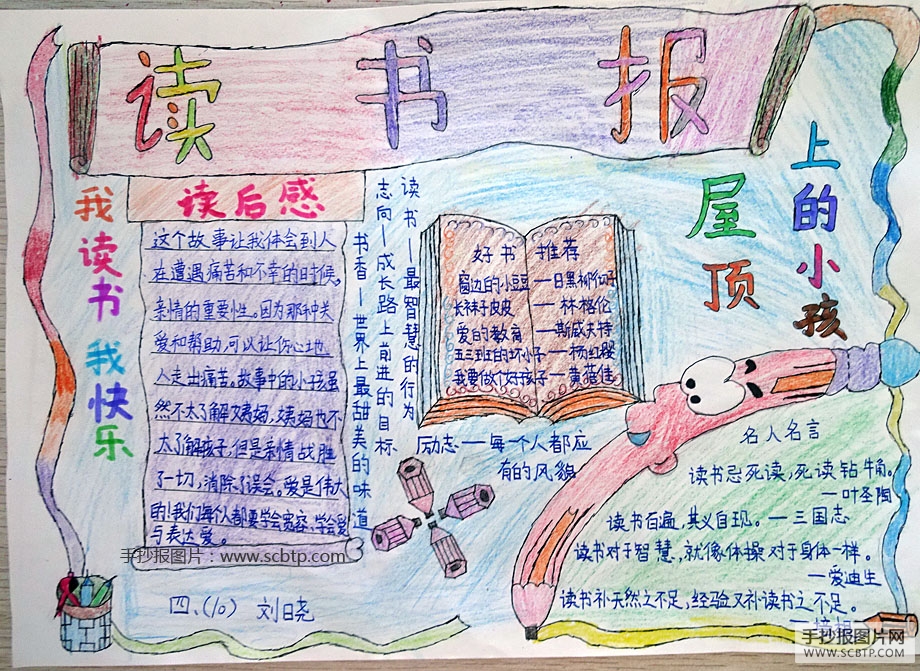 读书报
我读书 我快乐
读后感
这个故事让我体会到人
在遭遇痛苦和不幸的时候,
亲情的重要性。因为那种关
爱和帮助,可以让你心地
人走出痛苦。故事中的小孩虽
然不太了解姨妈,姨妈也不
太了解孩子,但是亲情战胜
了一切,消除了误会。爱是伟大
的!我们每个人都要学会宽容,学会爱
与表达爱。
四、(10) 刘日尧
读书—最智慧的行为
志向—成长路上前进的目标
书香—世界上最甜美的味道
好书 推荐
窗边的小豆豆—日黑柳彻子
长袜子皮皮—林格伦
爱的教育—斯威夫特
五三班的坏小子—杨红樱
我要做个好孩子—黄蓓佳
励志—每个人都应
有的风貌
屋顶
上的小孩
名人名言
读书忌死读,死读钻牛角。
—叶圣陶
读书百遍,其义自现。—三国志
读书对于智慧,就像体操对于身体一样。
—爱迪生
读书补天然之不足,经验又补读书之不足。
手抄报图片:www.scbtp.com
手抄报图片网
WWW.SCBTP.COM